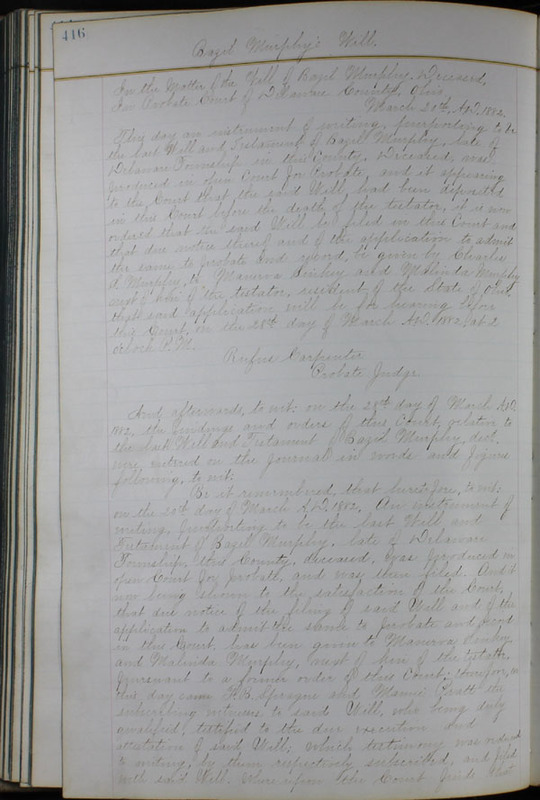 416
Bazil Murphy's Will.
In the Matter of the Will of Bazil Murphy, Deceased,
In Probate Court of Delaware County, Ohio.
March 20th, A.D. 1882.
This day an instrument of writing, purporting to be
the last Will and Testament of Bazil Murphy, late of
Delaware Township in this County, Deceased, was
produced in open Court for Probate, and it appearing
to the Court that the said Will had been deposited
in this Court before the death of the testator, it is now
ordered that the said Will be filed in this Court and
that due notice thereof and of the application to admit
the same to probate and record, be given by Charles
Murphy, to Manerva and Malinda Murphy
next of kin of the testator, resident of the State of Ohio,
that said application will be for hearing before
this Court, on the 28th day of March A.D. 1882, at 2
o'clock P.M.
Rufus Carpenter
Probate Judge
And afterwards, to wit: on the 28th day of March A.D.
1882, the findings and orders of this Court, relative to
the last Will and Testament of Bazil Murphy, decd.
were entered on the Journal in words and figures
following, to wit:
Be it remembered, that heretofore, to wit:
on the 20th day of March A.D. 1882, An instrument of
writing, purporting to be the last Will and
Testament of Bazil Murphy, late of Delaware
Township, this County, deceased, was produced in
open Court for probate, and was then filed. And it
now being shown to the satisfaction of the Court,
that due notice of the filing of said Will and of the
application to admit the same to probate and record
in this Court, has been given to Manerva
and Malinda Murphy, next of kin of the testator,
pursuant to a former order of this Court; therefore, on
this day came Sprague and Pratt the
subscribing witnesses to said Will, who being duly
qualified, testified to the due execution and
attestation of said Will; which testimony was reduced
to writing, by them respectively subscribed, and filed
with said Will. Whereupon the Court finds that